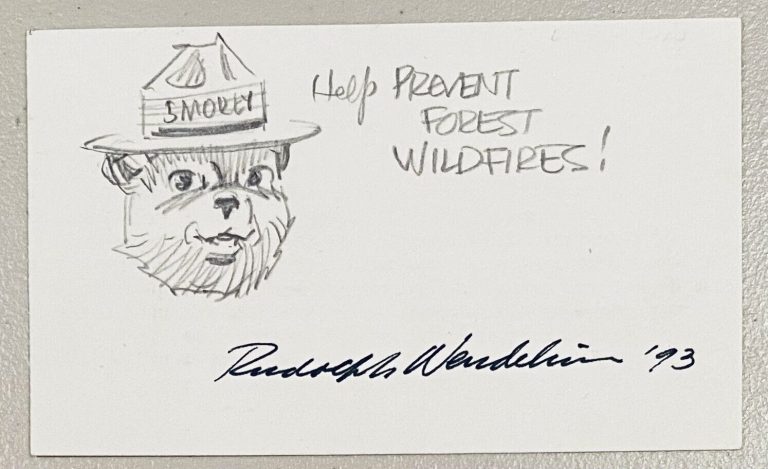 SMOKEY
Help PREVENT
FOREST
WILDFIRES!
Rudolph Wendelin '93